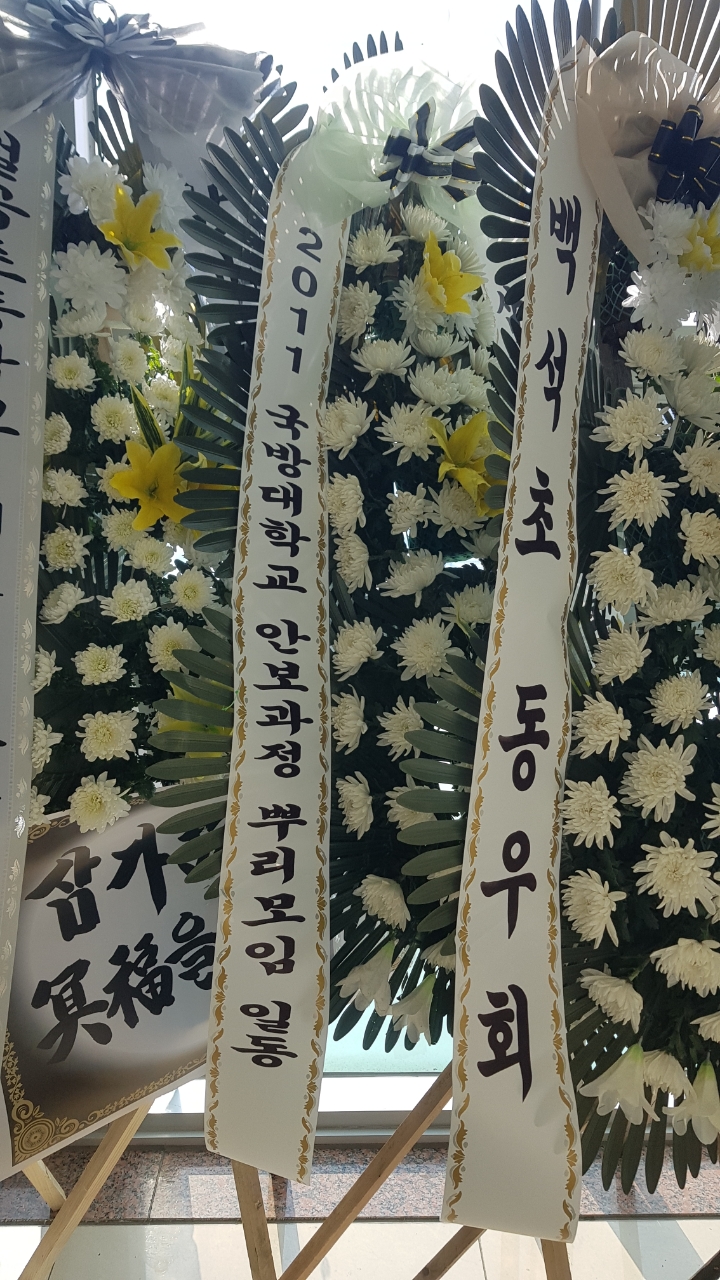 2011 국방대학교 안보과정 뿌리모임 일동
백석초 동우회
삼가
冥福을